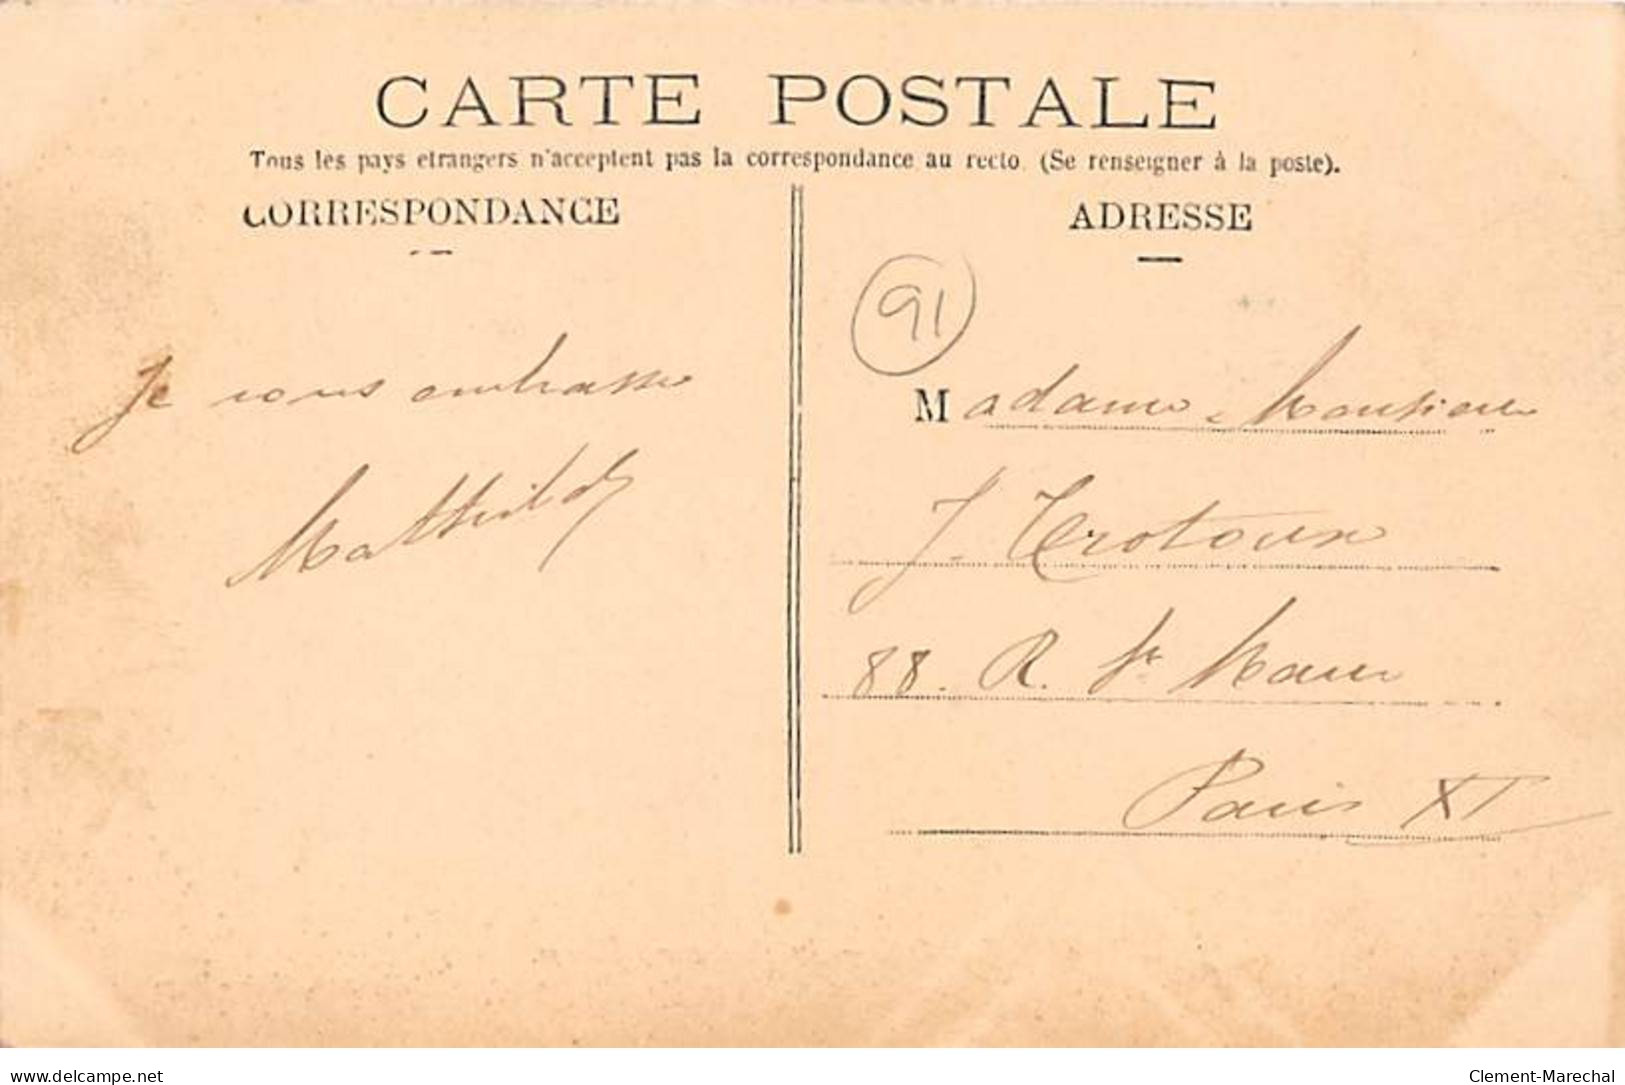 CARTE POSTALE
Tous les pays etrangers n'acceptent pas la correspondance au recto. (Se renseigner à la poste).
CORRESPONDANCE
ADRESSE
Je vous embrasse
Mathilde
91
Madame Monsieur
J. Trotoux
88. R. St Maur
Paris XI
www.delcampe.net
Clement-Marechal